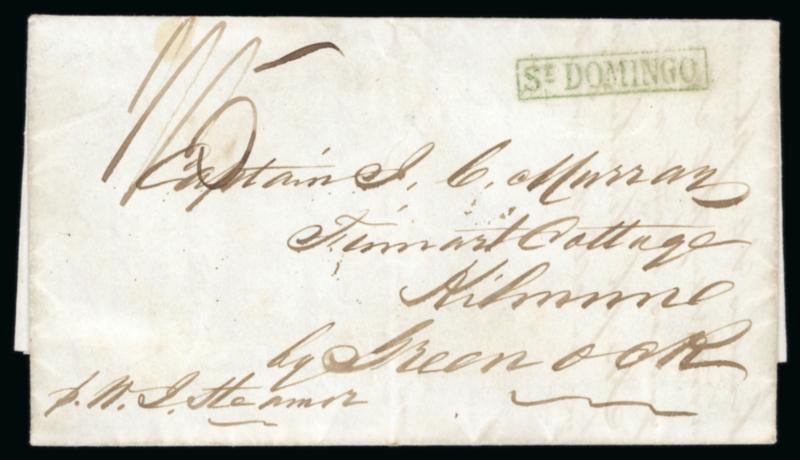 Sᵗ DOMINGO
1/5
Captain J. C. Murray
Finnart Cottage
Kilmune
by Greenock
p. W. I. Steamer